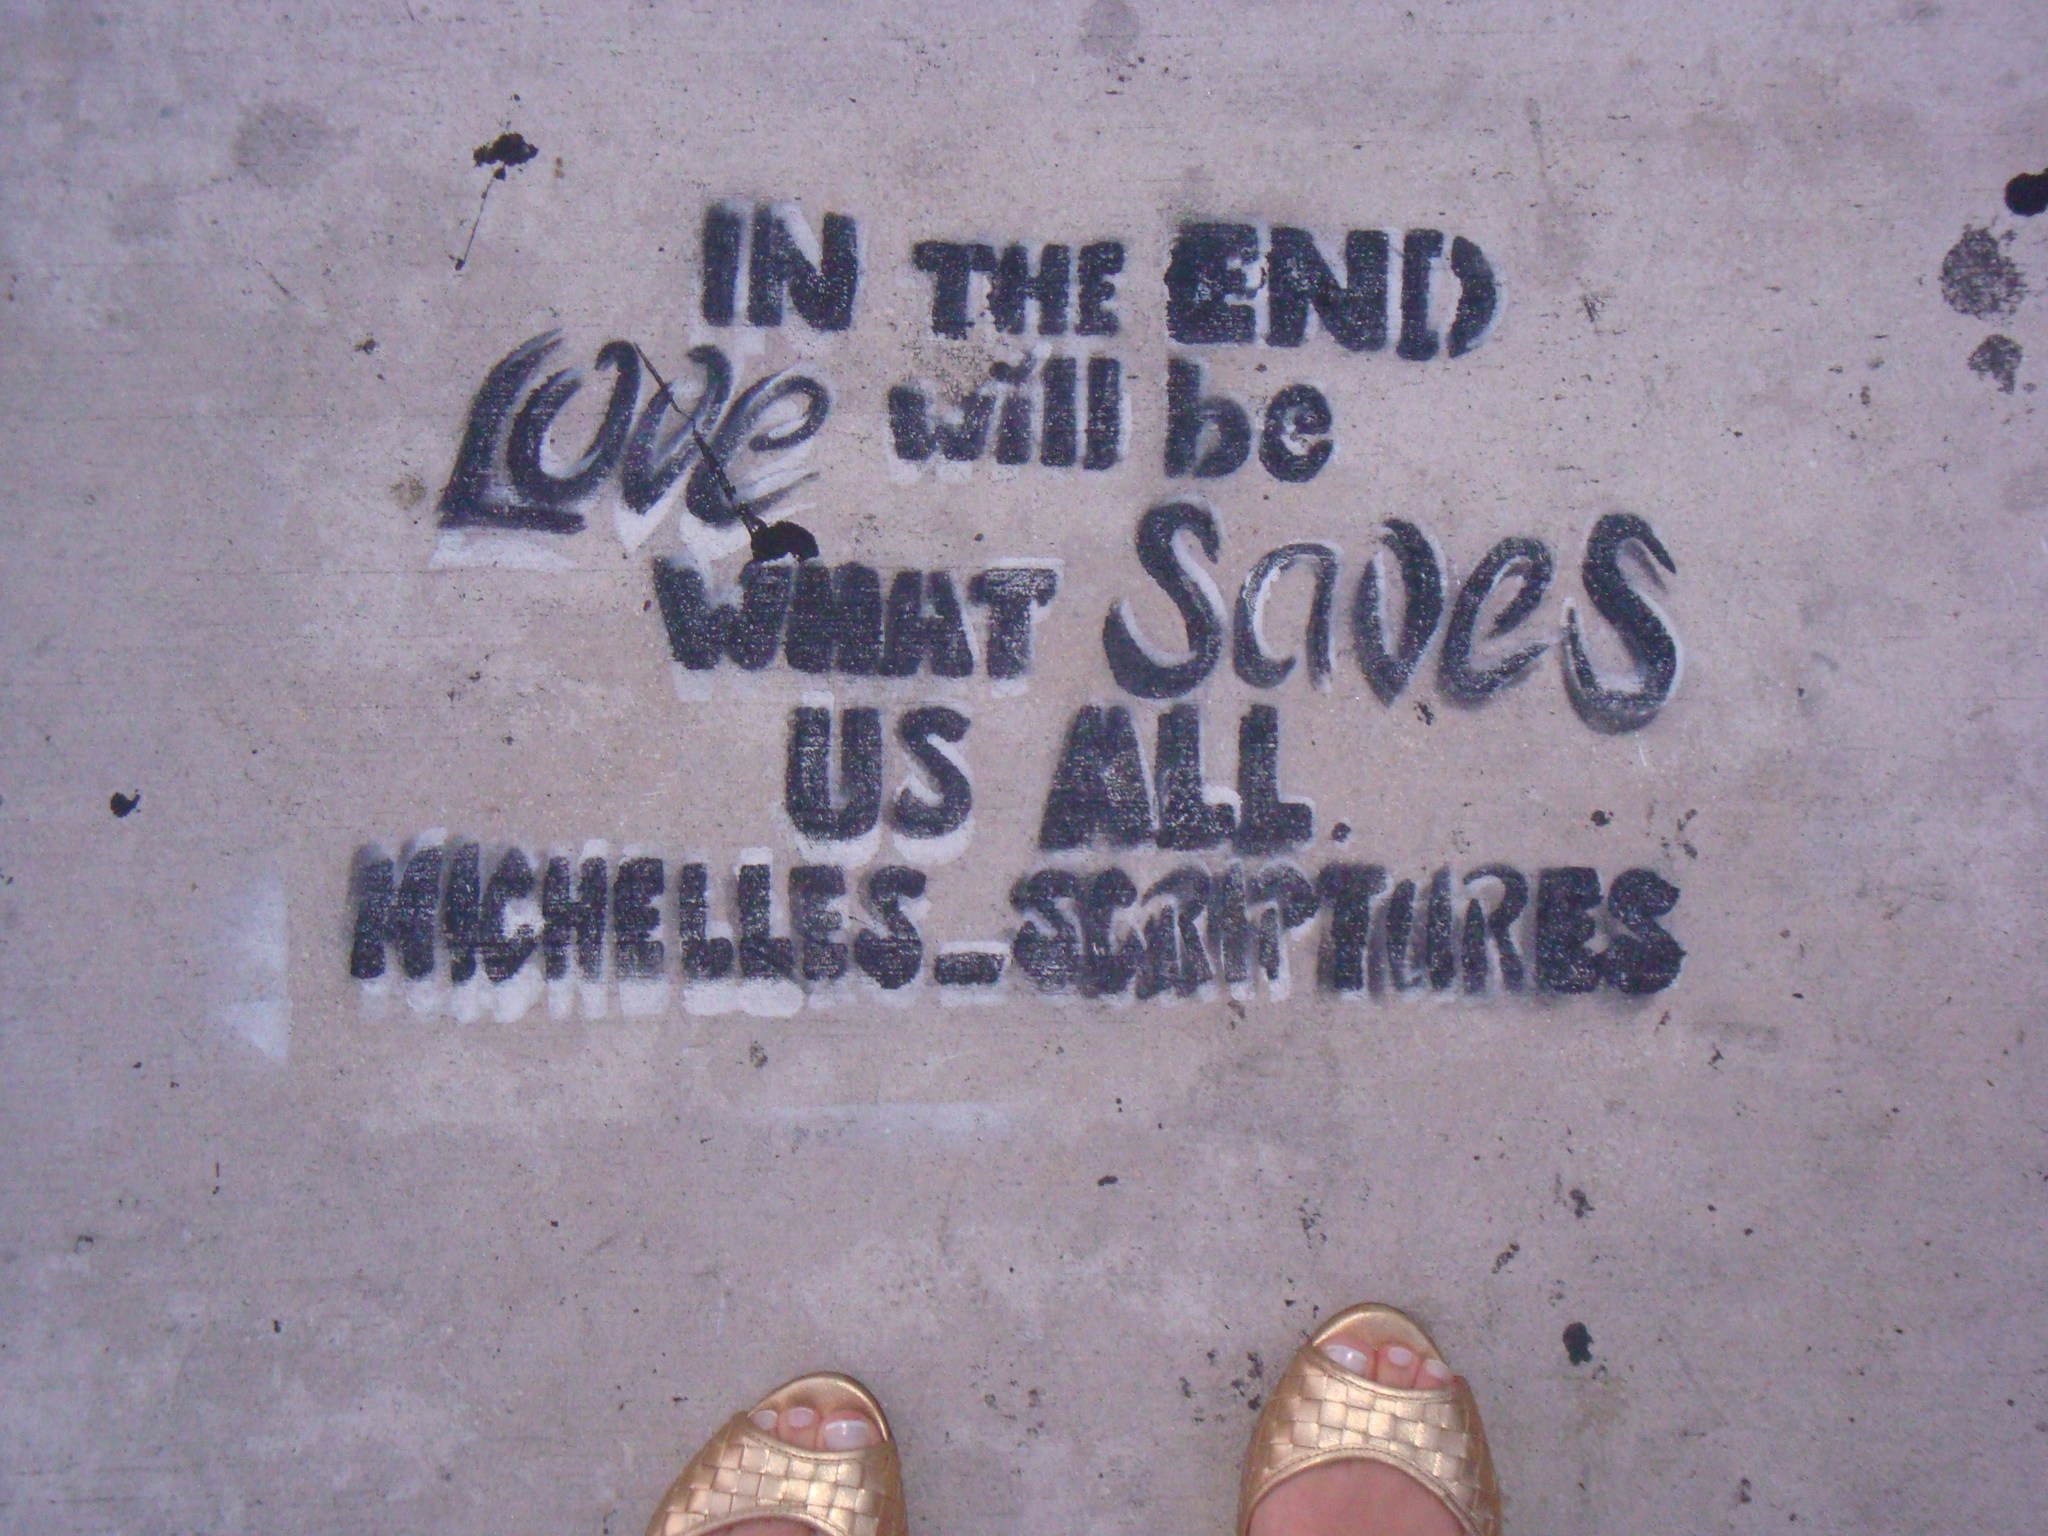 IN THE END
Love will be
WHAT SaVeS
US ALL.
MICHELLES_SCRIPTURES